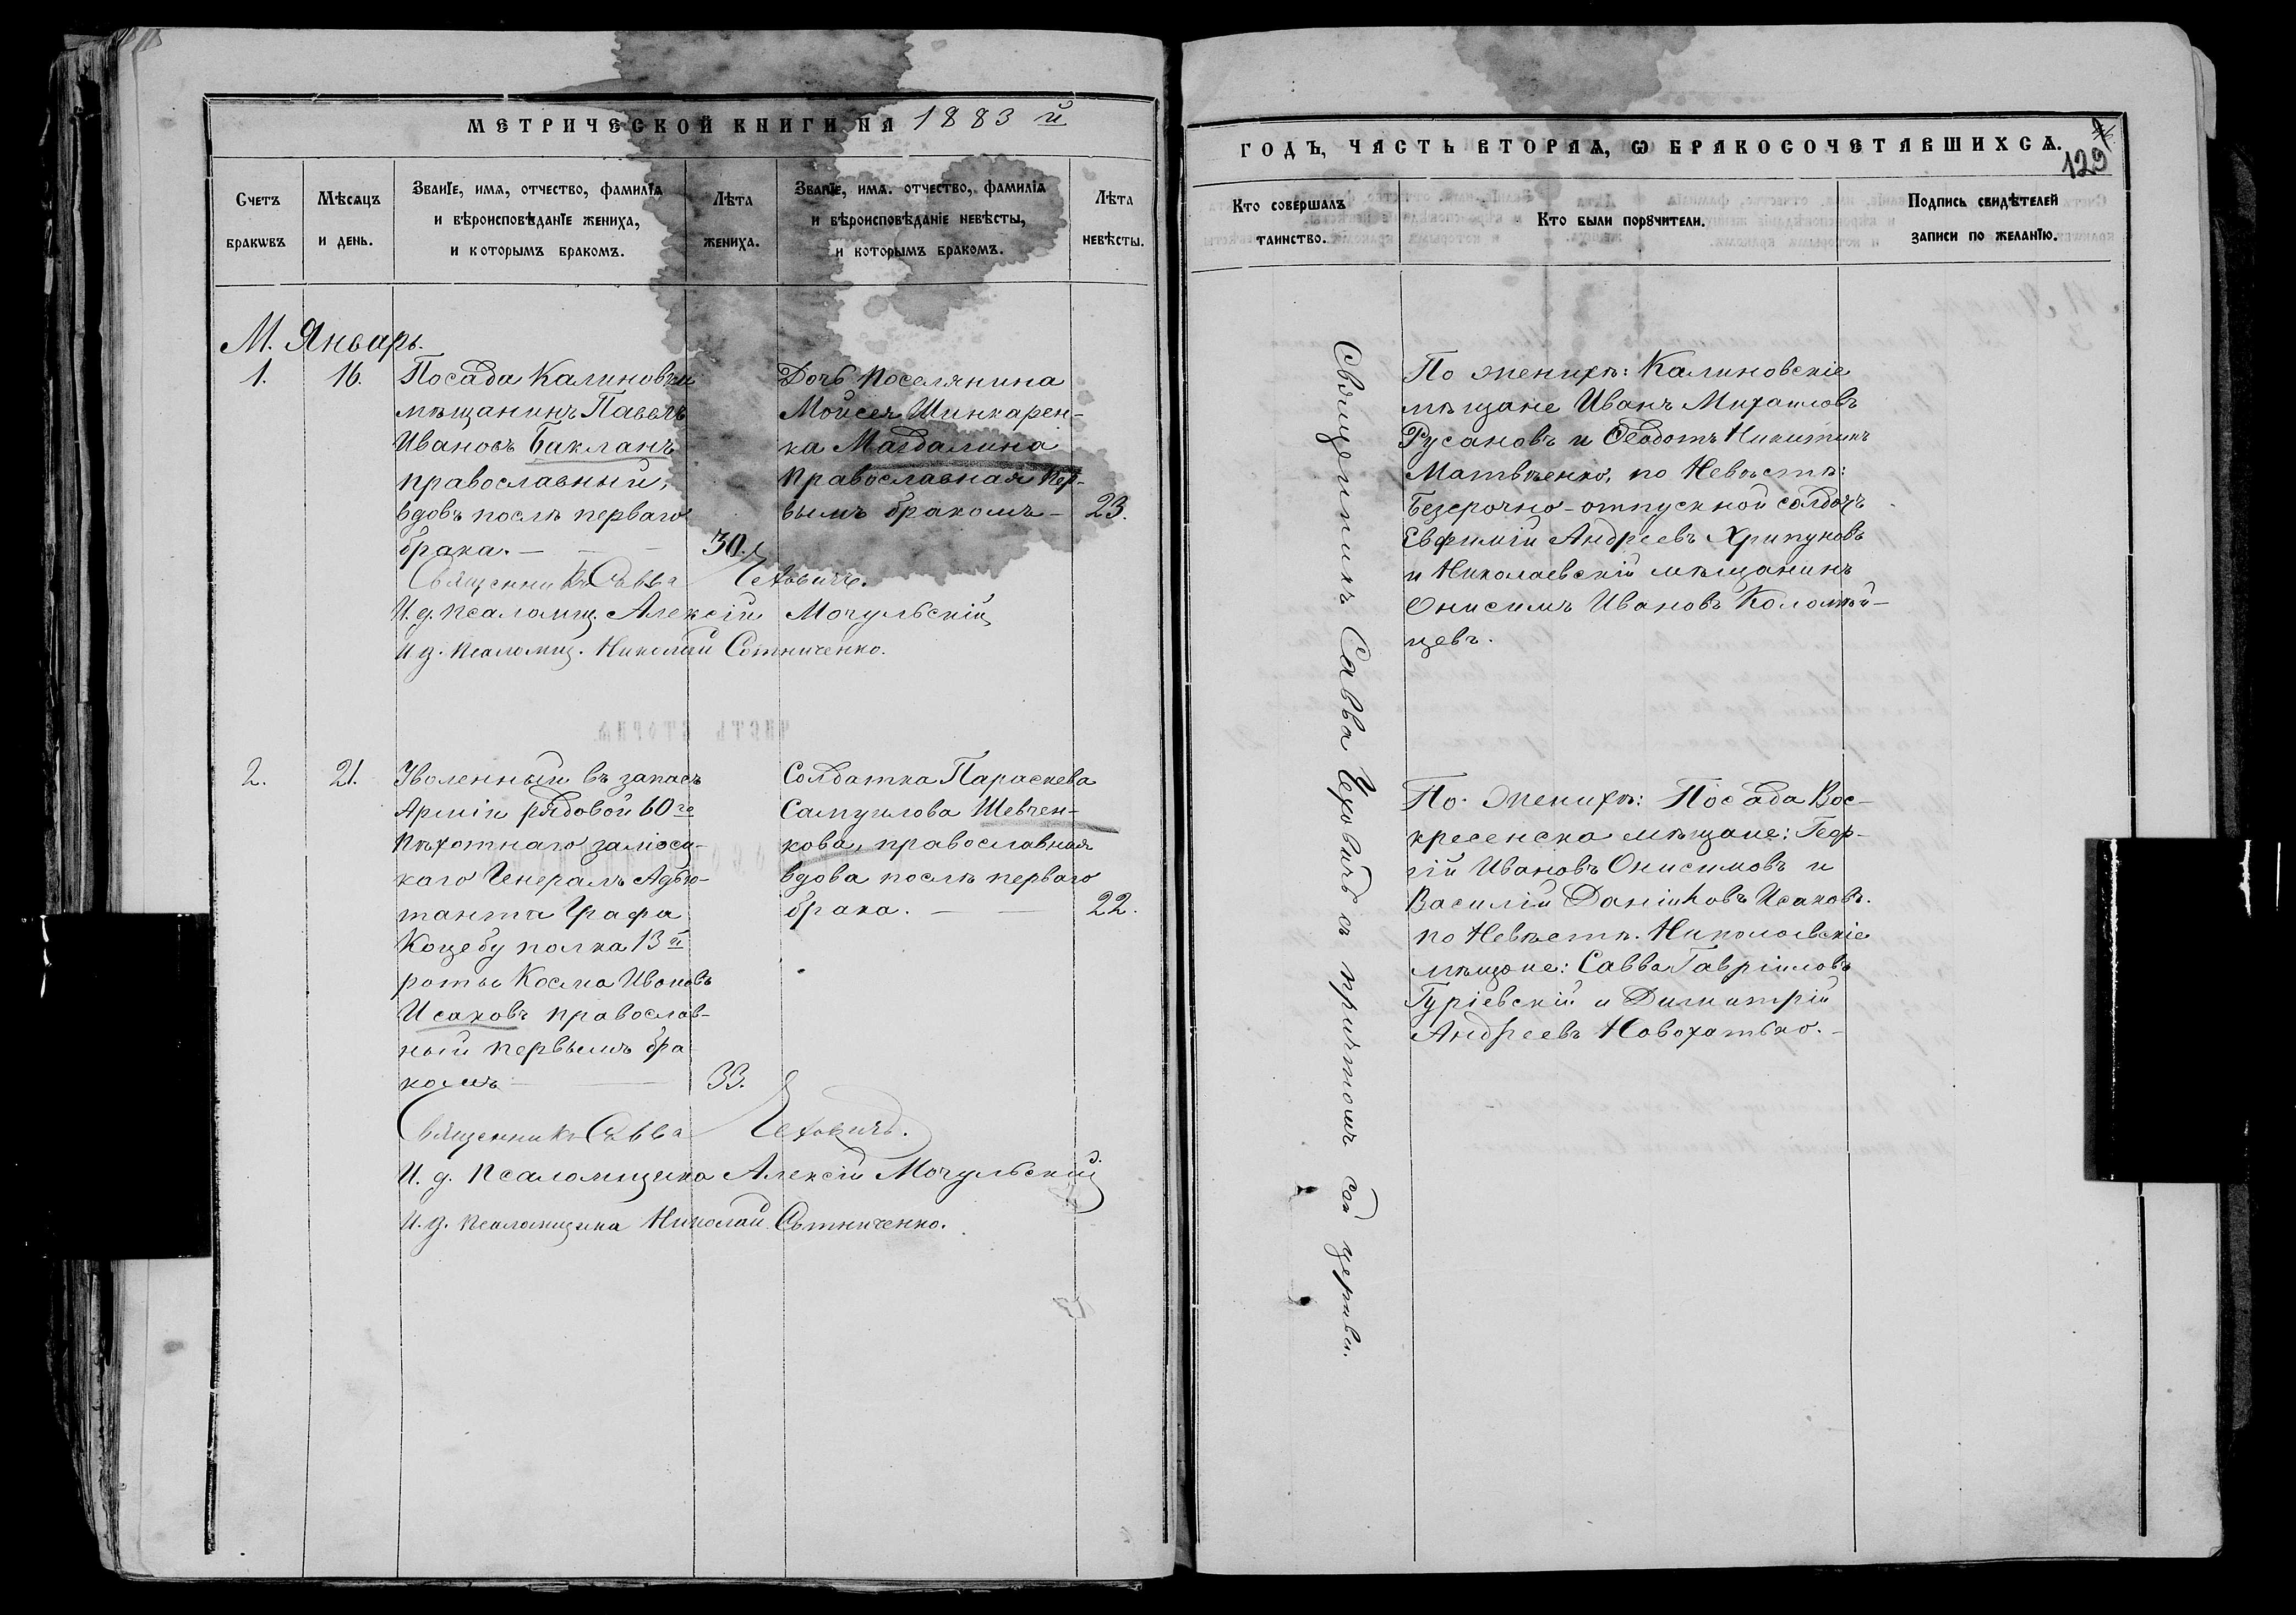 МЕТРИЧЕСКОЙ КНИГИ НА 1883 й
Счетъ браковъ
Мѣсяцъ и день.
Званіе, имя, отчество, фамилія и вѣроисповѣданіе жениха, и которымъ бракомъ.
Лѣта жениха.
Званіе, имя, отчество, фамилія и вѣроисповѣданіе невѣсты, и которымъ бракомъ.
Лѣта невѣсты.
М. Январь.
1. 16.
Посада Калиновки
мѣщанинъ Павелъ
Ивановъ Бакланъ
православный,
вдовъ послѣ перваго
брака. — 30.
Дочь поселянина
Мойсея Шинкарен-
ка Магдалина
православная пер-
вымъ бракомъ — 23.
Священникъ Савва Чеховичъ.
И. д. псаломщ. Алексій Мочульскій
И д. псаломщ. Николай Сотниченко.
2. 21.
Уволенный въ запасъ
Арміи рядовой 60го
пѣхотнаго замосц-
каго Генералъ Адъю-
танта Графа
Коцебу полка 13й
роты Косма Ивановъ
Исаковъ православ-
ный первымъ бра
комъ — 33.
Солдатка Параскева
Самуилова Шевчен-
кова, православная
вдова послѣ перваго
брака. — 22.
Священникъ Савва Чеховичъ.
И. д. псаломщика Алексій Мочульскій
И. д. псаломщика Николай Сотниченко.
ГОДЪ, ЧАСТЬ ВТОРАЯ, Ѡ БРАКОСОЧЕТАВШИХСЯ.
129
Кто совершалъ таинство.
Кто были порꙋчители.
Подпись свидѣтелей записи по желанію.
Священникъ Савва Чеховичъ съ причтомъ сей церкви.
По женихѣ: Калиновскіе
мѣщане Иванъ Михаиловъ
Русановъ и Ѳеодотъ Никитинъ
Матвѣенко, по Невѣстѣ:
Безсрочно-отпускной солдатъ
Евфимій Андреевъ Хрипуновъ
и Николаевскій мѣщанинъ
Онисимъ Ивановъ Коломой-
цевъ.
По женихѣ: Посада Вос-
кресенска мѣщане: Геор-
гій Ивановъ Онисимовъ и
Василій Даніиловъ Исаковъ.
по Невѣстѣ. Николаевскіе
мѣщане: Савва Гавріиловъ
Гуріевскій и Димитрій
Андреевъ Новохатько. —